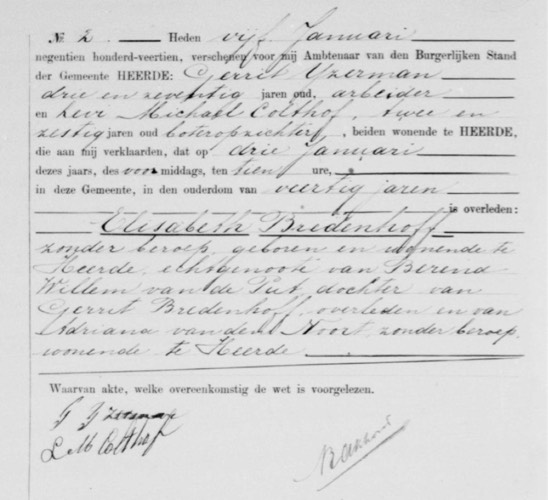 № 2. Heden vijf Januari
negentien honderd-veertien, verschenen voor mij Ambtenaar van den Burgerlijken Stand
der Gemeente HEERDE: Gerrit IJzerman
drie en zeventig jaren oud, arbeider
en Leur Michael Colthof, twee en
zestig jaren oud boteropzichter, beiden wonende te HEERDE,
die aan mij verklaarden, dat op drie januari
dezes jaars, des voormiddags, ten tien ure,
in deze Gemeente, in den ouderdom van veertig jaren
is overleden:
Elisabeth Bredenhoff
zonder beroep, geboren en wonende te
Heerde, echtgenoote van Berend
Willem van de Put, dochter van
Gerrit Bredenhoff, overleden en van
Adriana van den Noort, zonder beroep,
wonende te Heerde.
Waarvan akte, welke overeenkomstig de wet is voorgelezen.
G IJzerman
L M Colthof